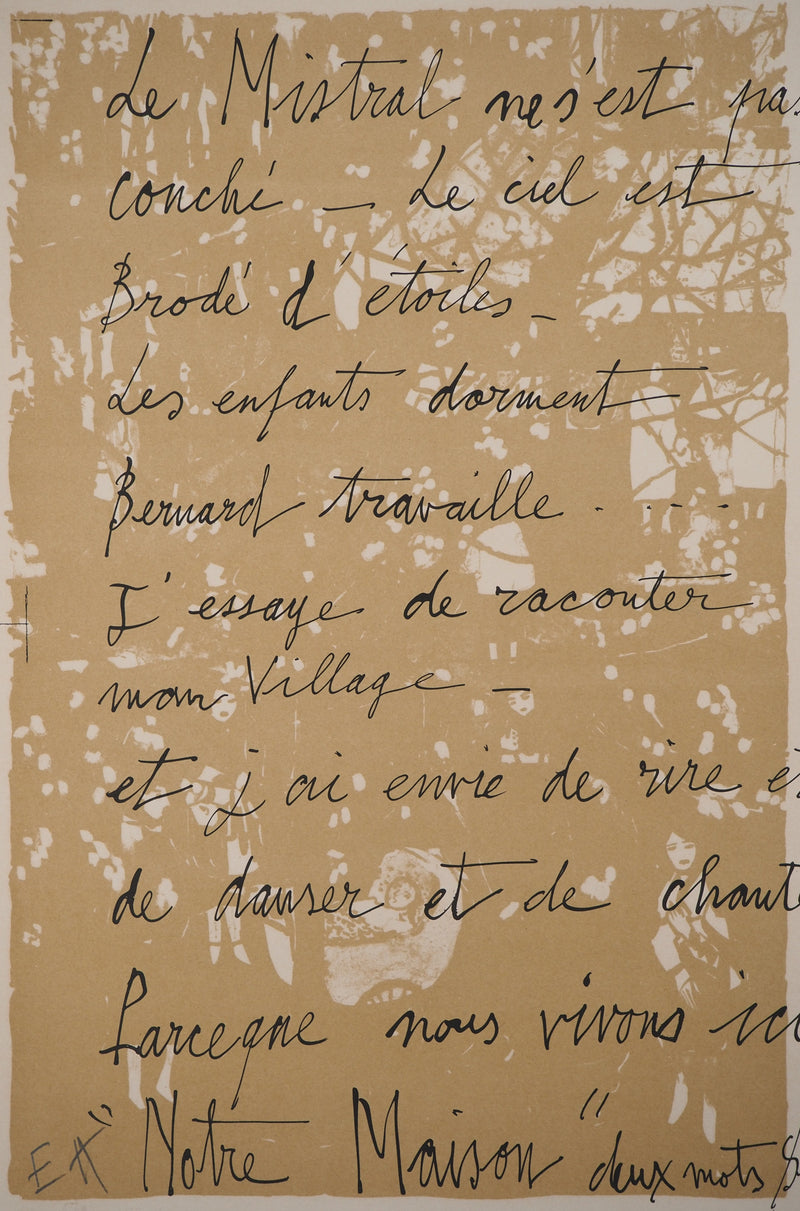 Le Mistral ne s'est pas
couché — Le ciel est
Brodé d'étoiles —
Les enfants dorment
Bernard travaille . . . . .
J'essaye de raconter
mon Village —
et j'ai envie de rire et
de danser et de chante
Parceque nous vivons ici
EA "Notre Maison" deux mots